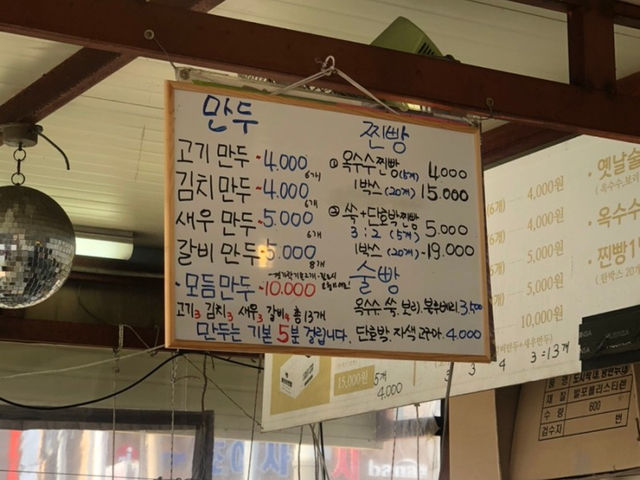 만두
고기 만두 - 4.000
6개
김치 만두 - 4.000
6개
새우 만두 - 5.000
6개
갈비 만두 - 5.000
8개
·모듬만두 - 10.000
고기3 김치3 새우3 갈비4 총 13개
만두는 기본 5분 걸립니다.
찐빵
① 옥수수찐빵(5개) 4000
1박스(20개) 15.000
② 쑥+단호박찐빵 5.000
3:2 (5개)
1박스(20개) - 19.000
술빵
옥수수.쑥.보리. 3,500
단호박. 자색고구마. 4.000
옛날술
(옥수수,보리
4,000원
·옥수수
5,000원
·찐빵1
(완박스 20개
10,000원
3 3 4 3=13개
15,000원
5개
4,000
재 질 발포폴리스티렌
수 량 600
검수자 번